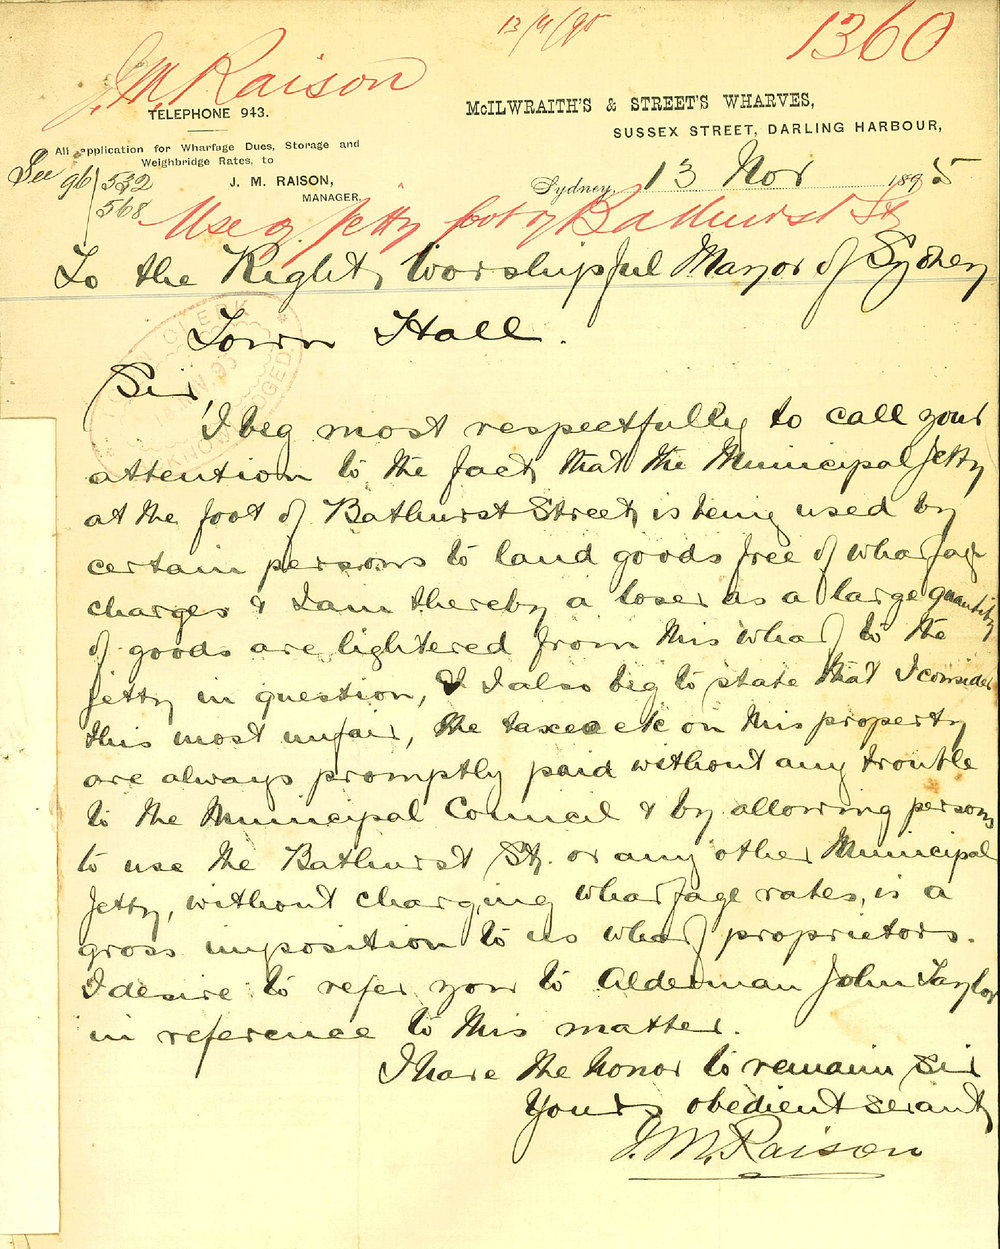 13/11/95
1360
J. M. Raison
TELEPHONE 943.
McILWRAITH'S & STREET'S WHARVES,
SUSSEX STREET, DARLING HARBOUR,
All application for Wharfage Dues, Storage and
Weighbridge Rates, to
J. M. RAISON,
MANAGER.
See 96/532
568
Sydney, 13 Nov 1895
Use of Jetty foot of Bathurst St
To the Right Worshipful Mayor of Sydney
Town Hall.
TOWN CLERK
NOV. 95
ACKNOWLEDGED
Sir,
I beg most respectfully to call your
attention to the fact that the Municipal Jetty
at the foot of Bathurst Street is being used by
certain persons to land goods free of wharfage
charges & I am thereby a loser as a large quantity
of goods are lightered from this wharf to the
jetty in question, & I also beg to state that I consider
this most unfair, the taxes etc on this property
are always promptly paid without any trouble
to the Municipal Council & by allowing persons
to use the Bathurst St. or any other Municipal
Jetty, without charging wharfage rates, is a
gross imposition to us wharf proprietors.
I desire to refer you to Alderman John Taylor
in reference to this matter.
I have the honor to remain Sir
Yours obedient servant
J. M. Raison